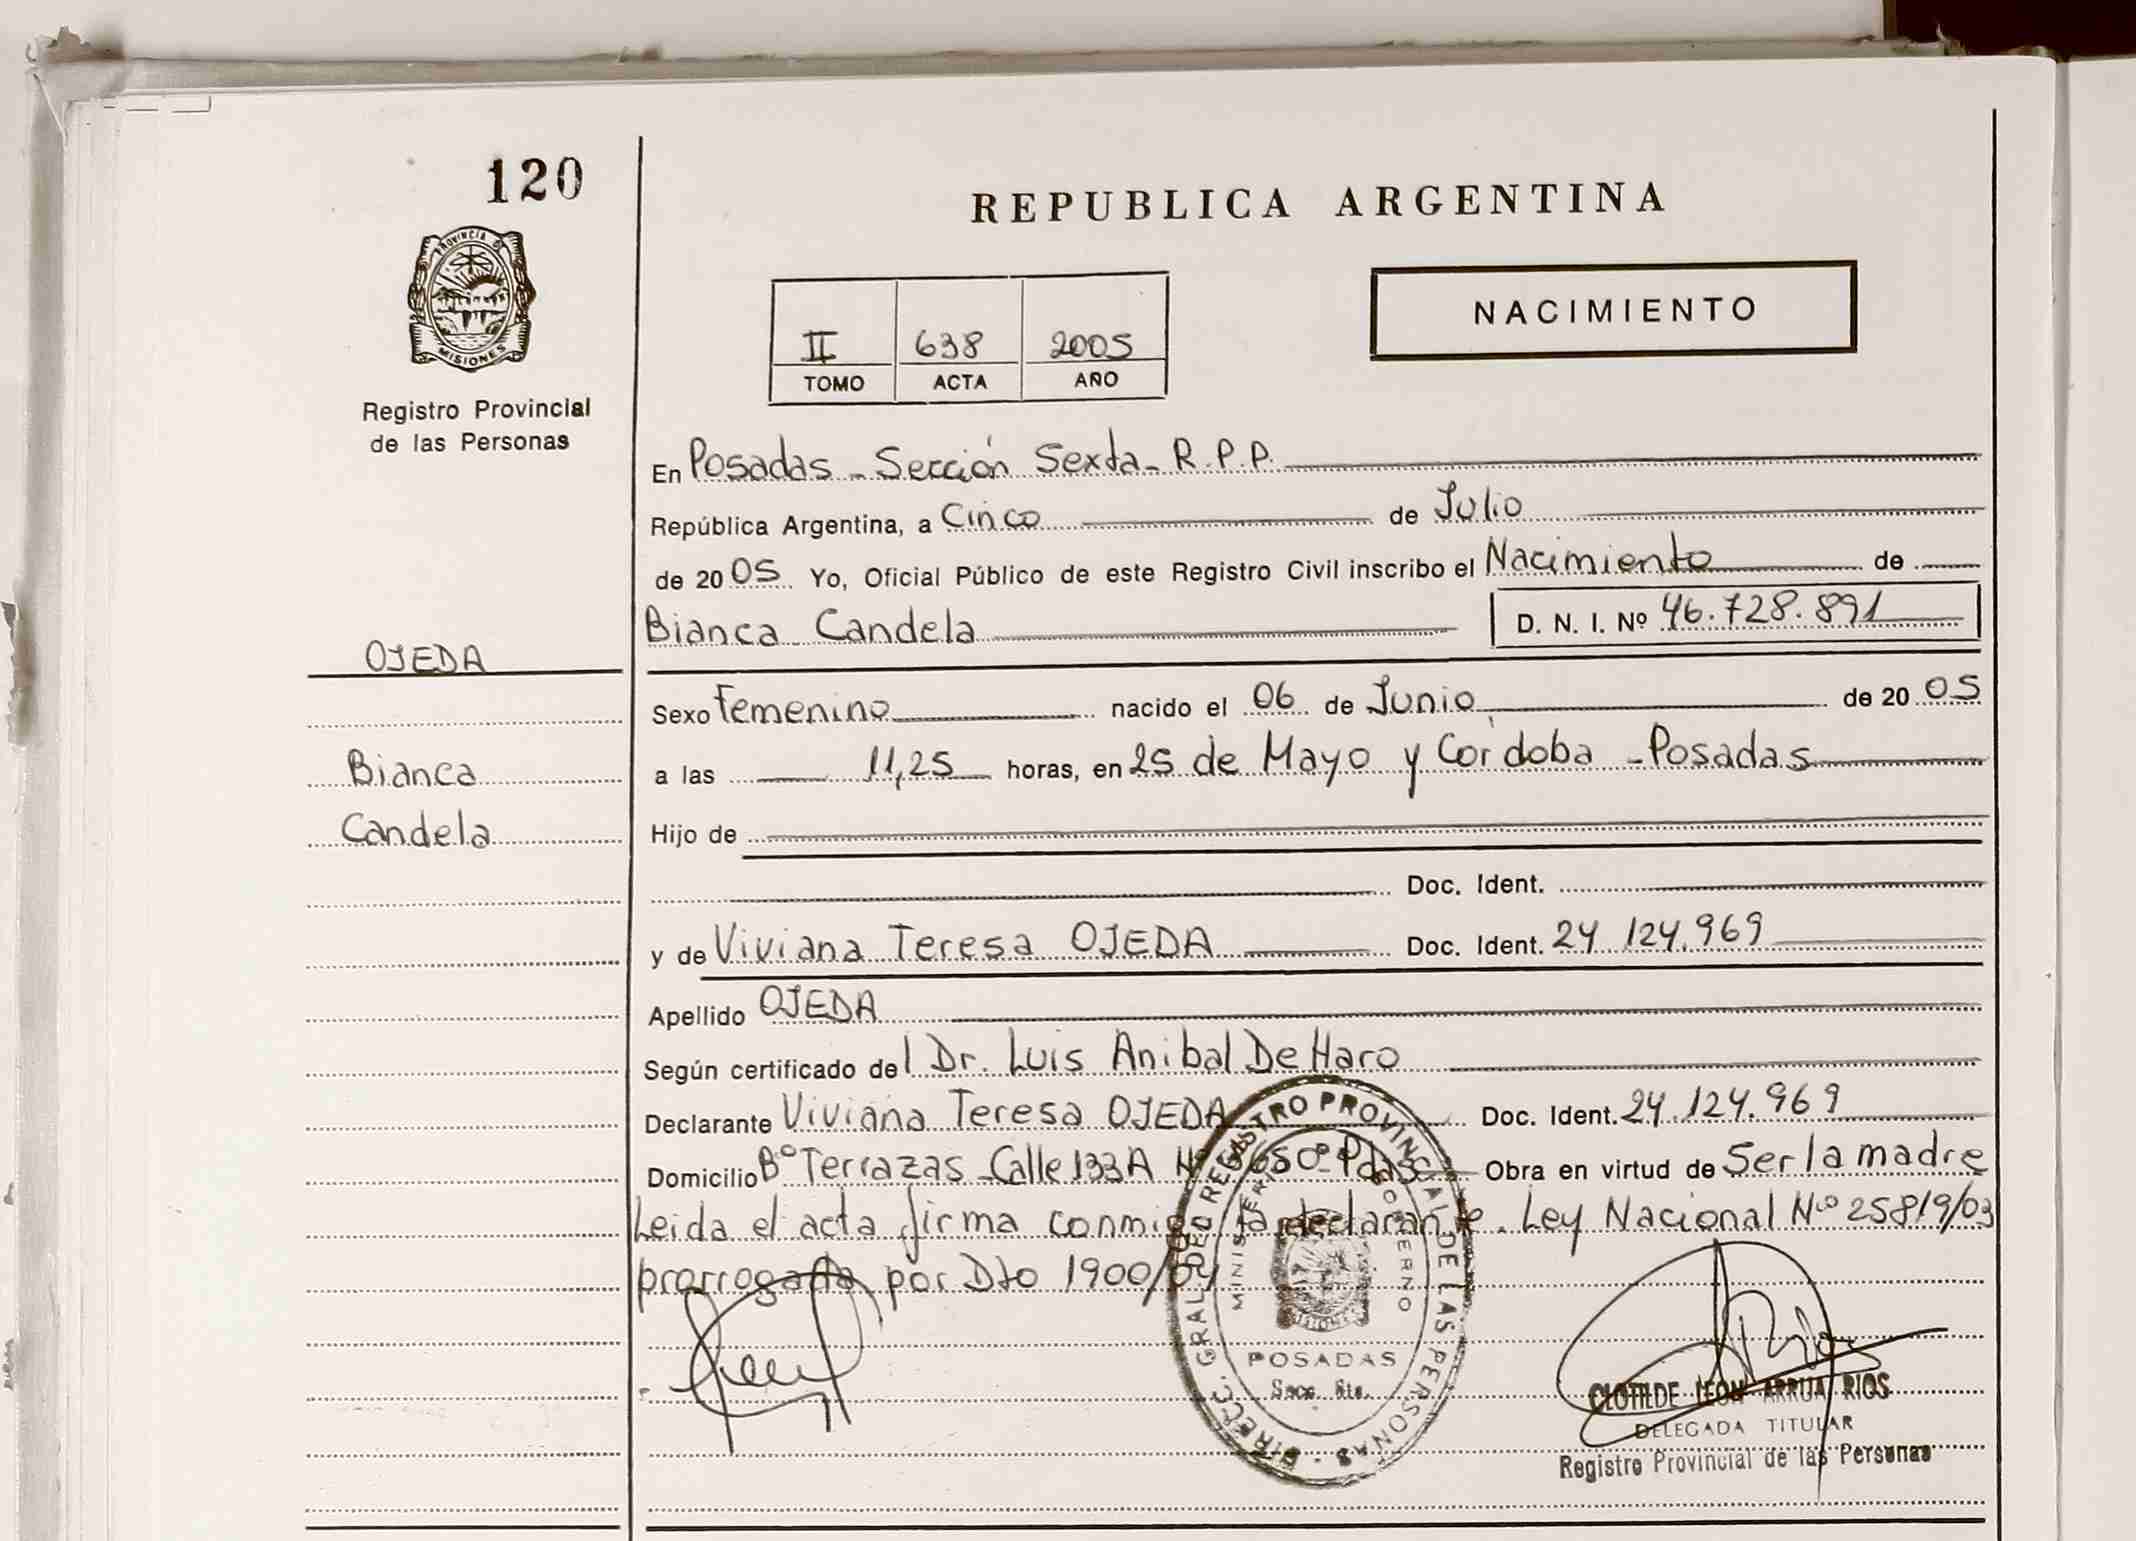 120
REPUBLICA ARGENTINA
PROVINCIA DE
MISIONES
NACIMIENTO
II 638 2005
TOMO ACTA AÑO
Registro Provincial
de las Personas
En Posadas - Sección Sexta - R.P.P.
República Argentina, a Cinco de Julio
de 2005 Yo, Oficial Público de este Registro Civil inscribo el Nacimiento de
Bianca Candela D. N. I. Nº 46.728.891
OJEDA
Sexo Femenino nacido el 06 de Junio de 2005
Bianca
a las 11,25 horas, en 25 de Mayo y Córdoba - Posadas
Candela
Hijo de
Doc. Ident.
y de Viviana Teresa OJEDA Doc. Ident. 24 124.969
Apellido OJEDA
Según certificado del Dr. Luis Anibal De Haro
Declarante Viviana Teresa OJEDA Doc. Ident. 24.124.969
Domicilio Bº Terrazas - Calle 133A Nº Pdas Obra en virtud de Ser la madre
Leida el acta firma conmigo la declarante. Ley Nacional Nº 25819/03
prorrogada por Dto 1900/04
DIRECC. GRAL. DEL REGISTRO PROVINCIAL DE LAS PERSONAS
MINISTERIO GOBIERNO
MISIONES
POSADAS
Secc. 6ta.
CLOTILDE LEON ARRUA RIOS
DELEGADA TITULAR
Registro Provincial de las Personas